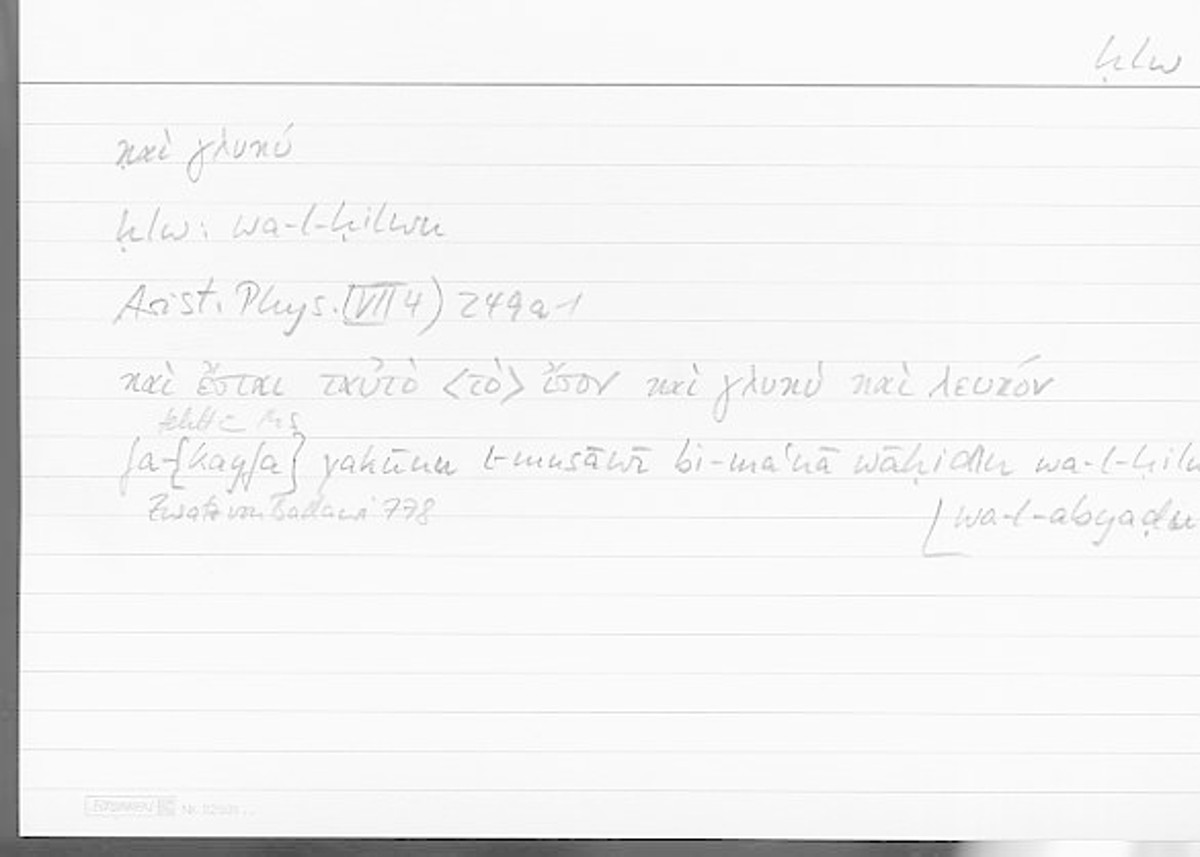 ḥlw
καὶ γλυκύ
ḥlw: wa-l-ḥilwu
Arist. Phys. (VII 4) 249a1
καὶ ἔσται ταὐτὸ <τὸ> ἴσον καὶ γλυκὺ καὶ λευκόν
fehlt Ms
fa-{kayfa} yakūnu l-musāwī bi-maʿnā wāḥidin wa-l-ḥilw
Zusatz von Badawi 778
wa-l-abyaḍu